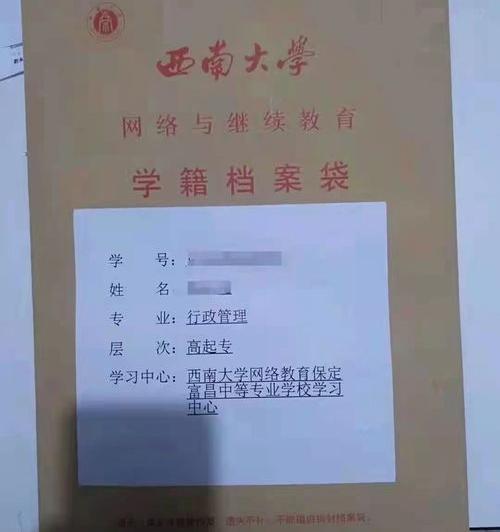 西南大学
网络与继续教育
学籍档案袋
学 号：
姓 名：
专 业：行政管理
层 次：高起专
学习中心：西南大学网络教育保定
富昌中等专业学校学习
中心
遗失不补，不能擅自拆封档案袋。